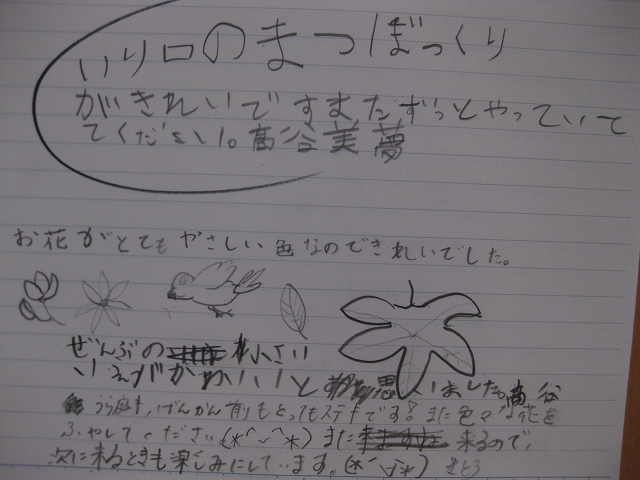 いり口のまつぼっくり
がきれいですまたずっとやっていて
てくださいい。髙谷美夢
お花がとてもやさしい色なのできれいでした。
ぜんぶの小さい
いえがかわいいと思いました。髙谷
うら庭も、げんかん前もとってもステキです!また色々な花を
ふやしてください(*^ー^*)また来るので、
次に来るときも楽しみにしています。(*^ー^*)